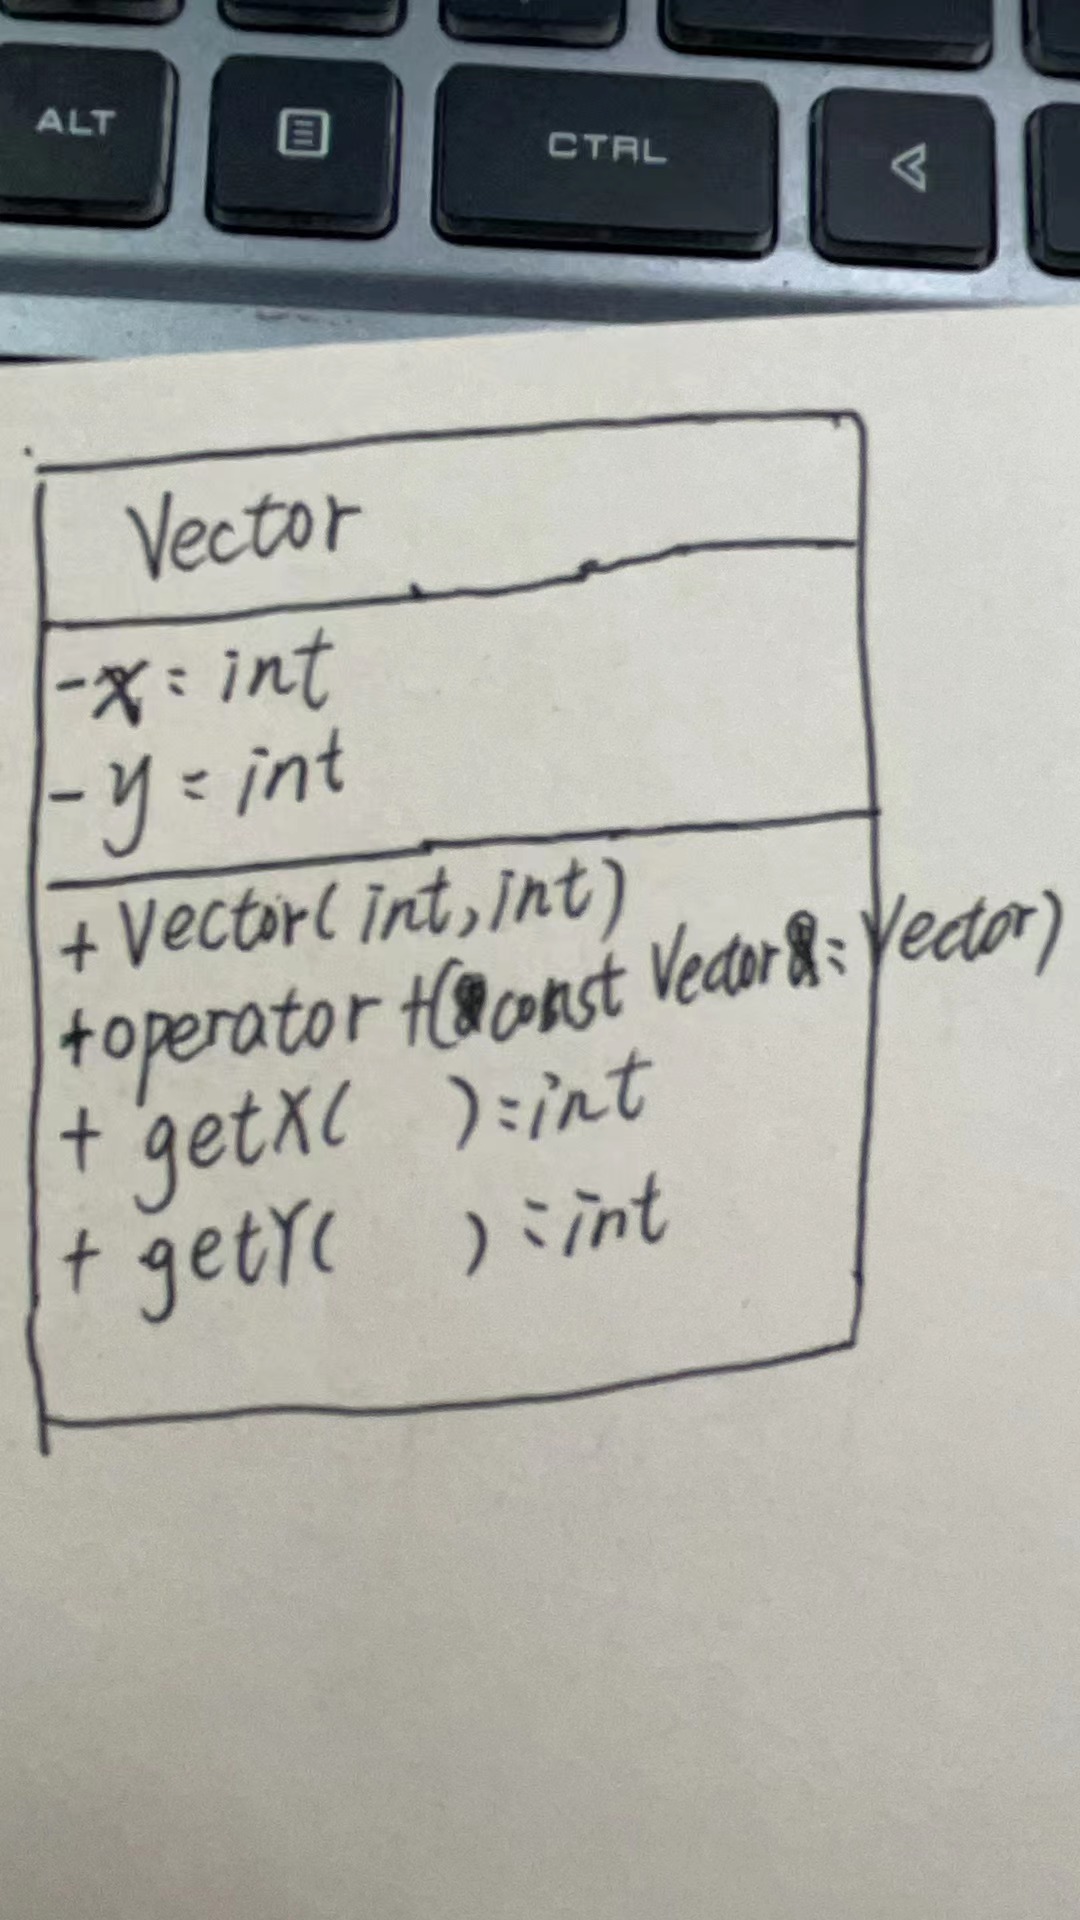 ALT CTRL
Vector
-x: int
-y: int
+ Vector(int, int)
+operator +(const Vector&: Vector)
+ getX( ):int
+ getY( ):int